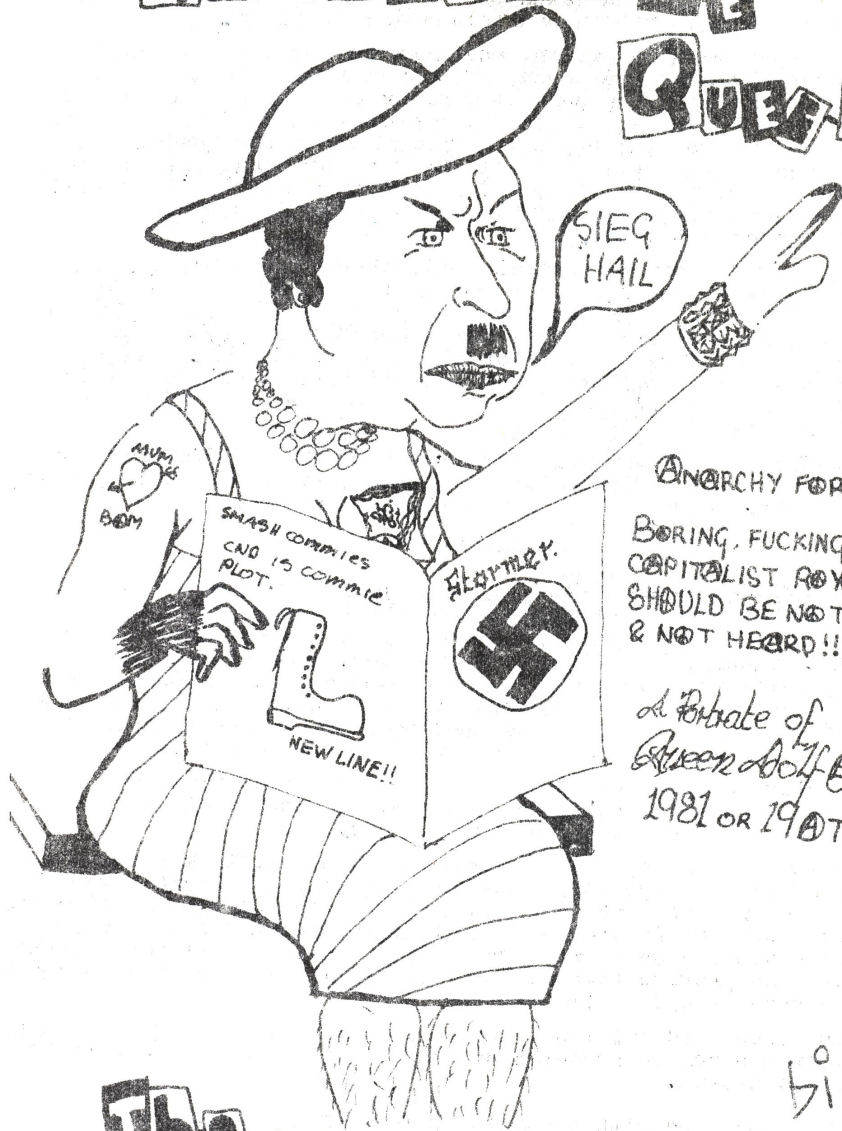 QUEE
SIEG
HAIL
MUM
BOM
SMASH COMMIES
CND IS COMMIE
PLOT.
NEW LINE!!
Stormer.
ANARCHY FOR
BORING, FUCKING
CAPITALIST ROY
SHOULD BE NOT
& NOT HEARD!!
A Portrate of
Queen Adolf
1981 OR 19
bi
The